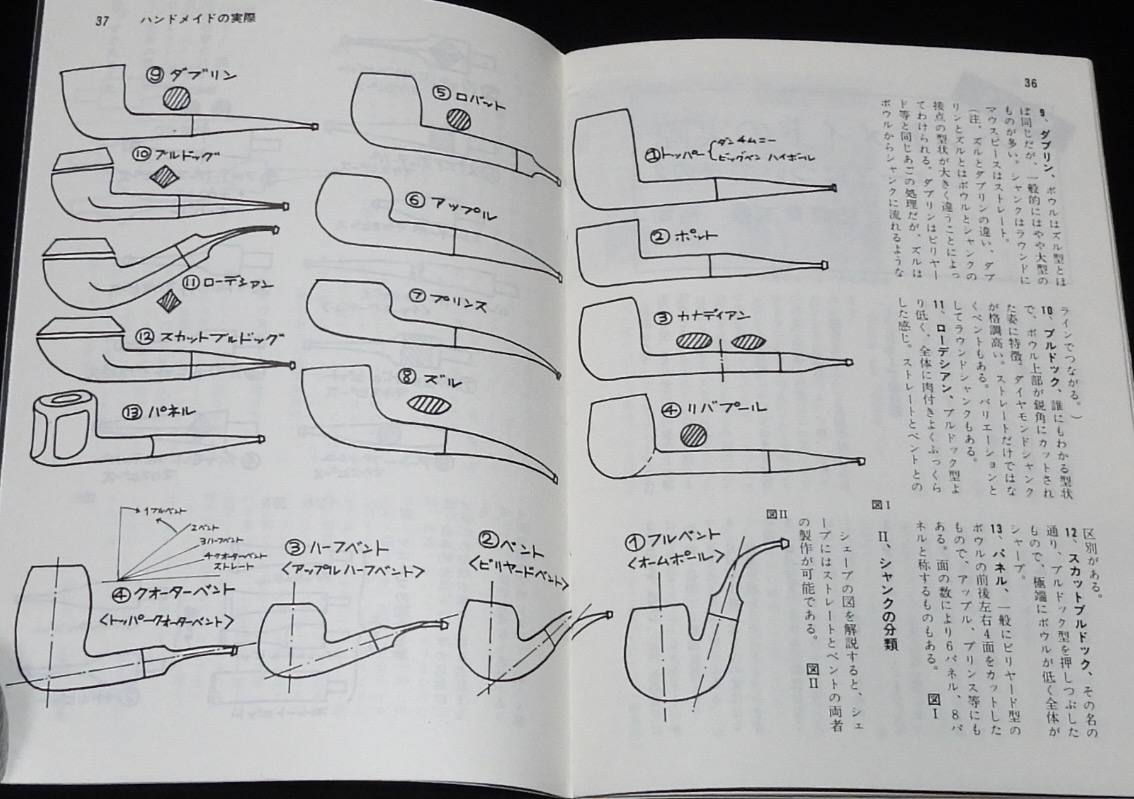 36
9、ダブリン、ボウルはズル型とほ
ぼ同じだが、一般的にはやや大型の
ものが多い。シャンクはラウンドに
マウスピースはストレート。
(注、ズルとダブリンの違い、ダブ
リンとズルとはボウルとシャンクの
接点の型状が大きく違うことによっ
てわけられる。ダブリンはビリヤー
ド等と同じあごの処理だが、ズルは
ボウルからシャンクに流れるような
ラインでつながる。)
10、ブルドック、誰にもわかる型状
で、ボウル上部が鋭角にカットされ
た姿に特徴。ダイヤモンドシャンク
が格調高い。ストレートだけではな
くベントもある。バリエーションと
してラウンドシャンクもある。
11、ローデシアン、ブルドック型よ
り低く、全体に肉付きよくふっくら
した感じ。ストレートとベントとの
区別がある。
12、スカットブルドック、その名の
通り、ブルドック型を押しつぶした
もので、極端にボウルが低く全体が
シャープ。
13、パネル、一般にビリヤード型の
ボウルの前後左右4面をカットした
もので、アップル、プリンス等にも
ある。面の数により6パネル、8パ
ネルと称するものもある。 図I
II、シャンクの分類
シェープの図を解説すると、シェ
ープにはストレートとベントの両者
の製作が可能である。 図II
図I
①トッパー{ダンチムニー
ビッグベン ハイボール
②ポット
③カナディアン
④リバプール
図II
①フルベント
<オームポール>
37
ハンドメイドの実際
⑤ロバット
⑥アップル
⑦プリンス
⑧ズル
⑨ダブリン
⑩ブルドッグ
⑪ローデシアン
⑫スカットブルドッグ
⑬パネル
②ベント
<ビリヤードベント>
③ハーフベント
<アップルハーフベント>
1フルベント
2ベント
3ハーフベント
4クオーターベント
ストレート
④クオーターベント
<トッパークオーターベント>